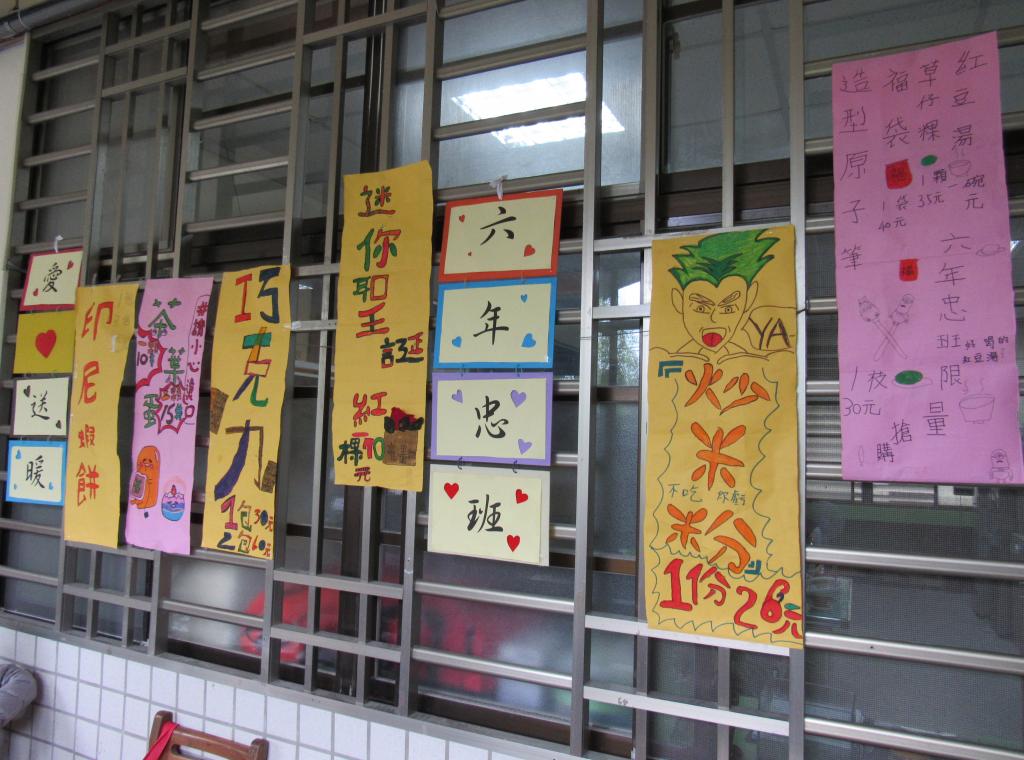 愛
送
暖
印尼蝦餅
茶葉蛋
請小心
巧克力
1包30元
2包60元
迷你聖誕紅
1棵90元
六
年
忠
班
YA
炒米粉
不吃 你虧
1份26元
紅豆湯
1碗
元
草仔粿
1顆
35元
福袋
1袋
40元
福
造型原子筆
1枝
30元
六年忠班
好喝的
紅豆湯
限量
搶購